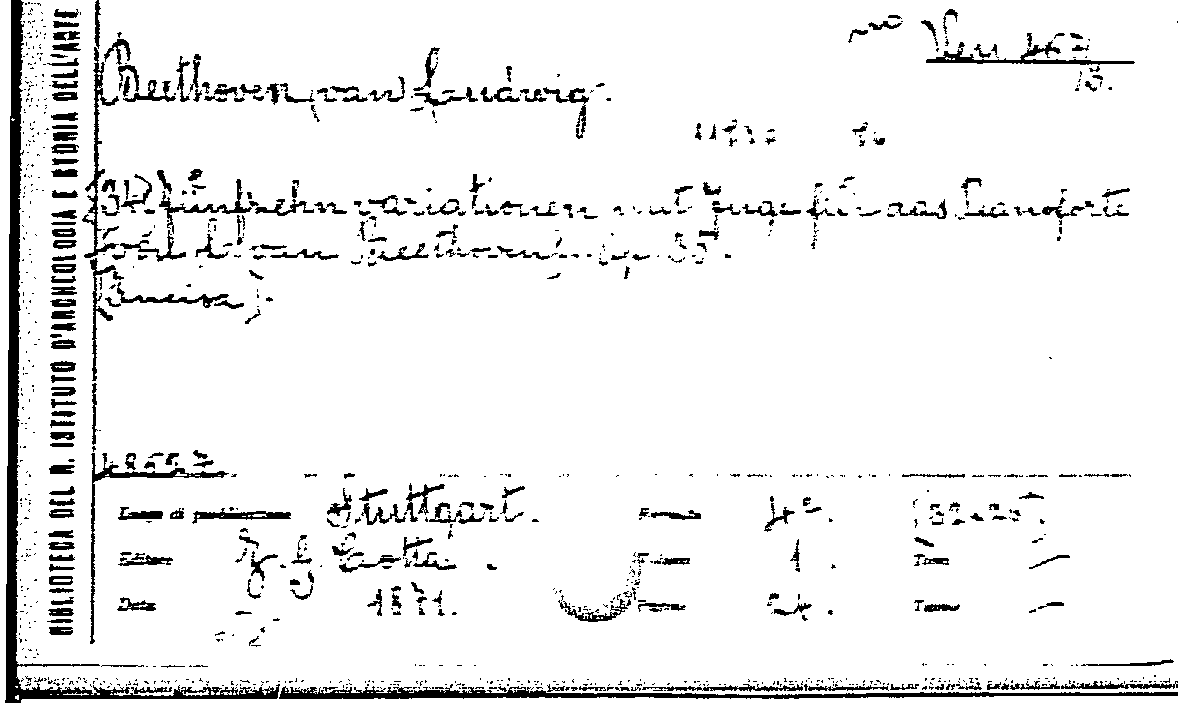 BIBLIOTECA DEL R. ISTITUTO D'ARCHEOLOGIA E STORIA DELL'ARTE
Ven 467
13.
Beethoven, van Ludwig.
Fünfzehn variationen mit Fuge für das Pianoforte
von L. van Beethoven. Op. 35.
(Musica).
48557
Luogo di pubblicazione Stuttgart. Formato 4°. (32x25).
Editore J. G. Cotta. Volume 1. Tomo —
Data 1871. Pagine 24. Tavole —